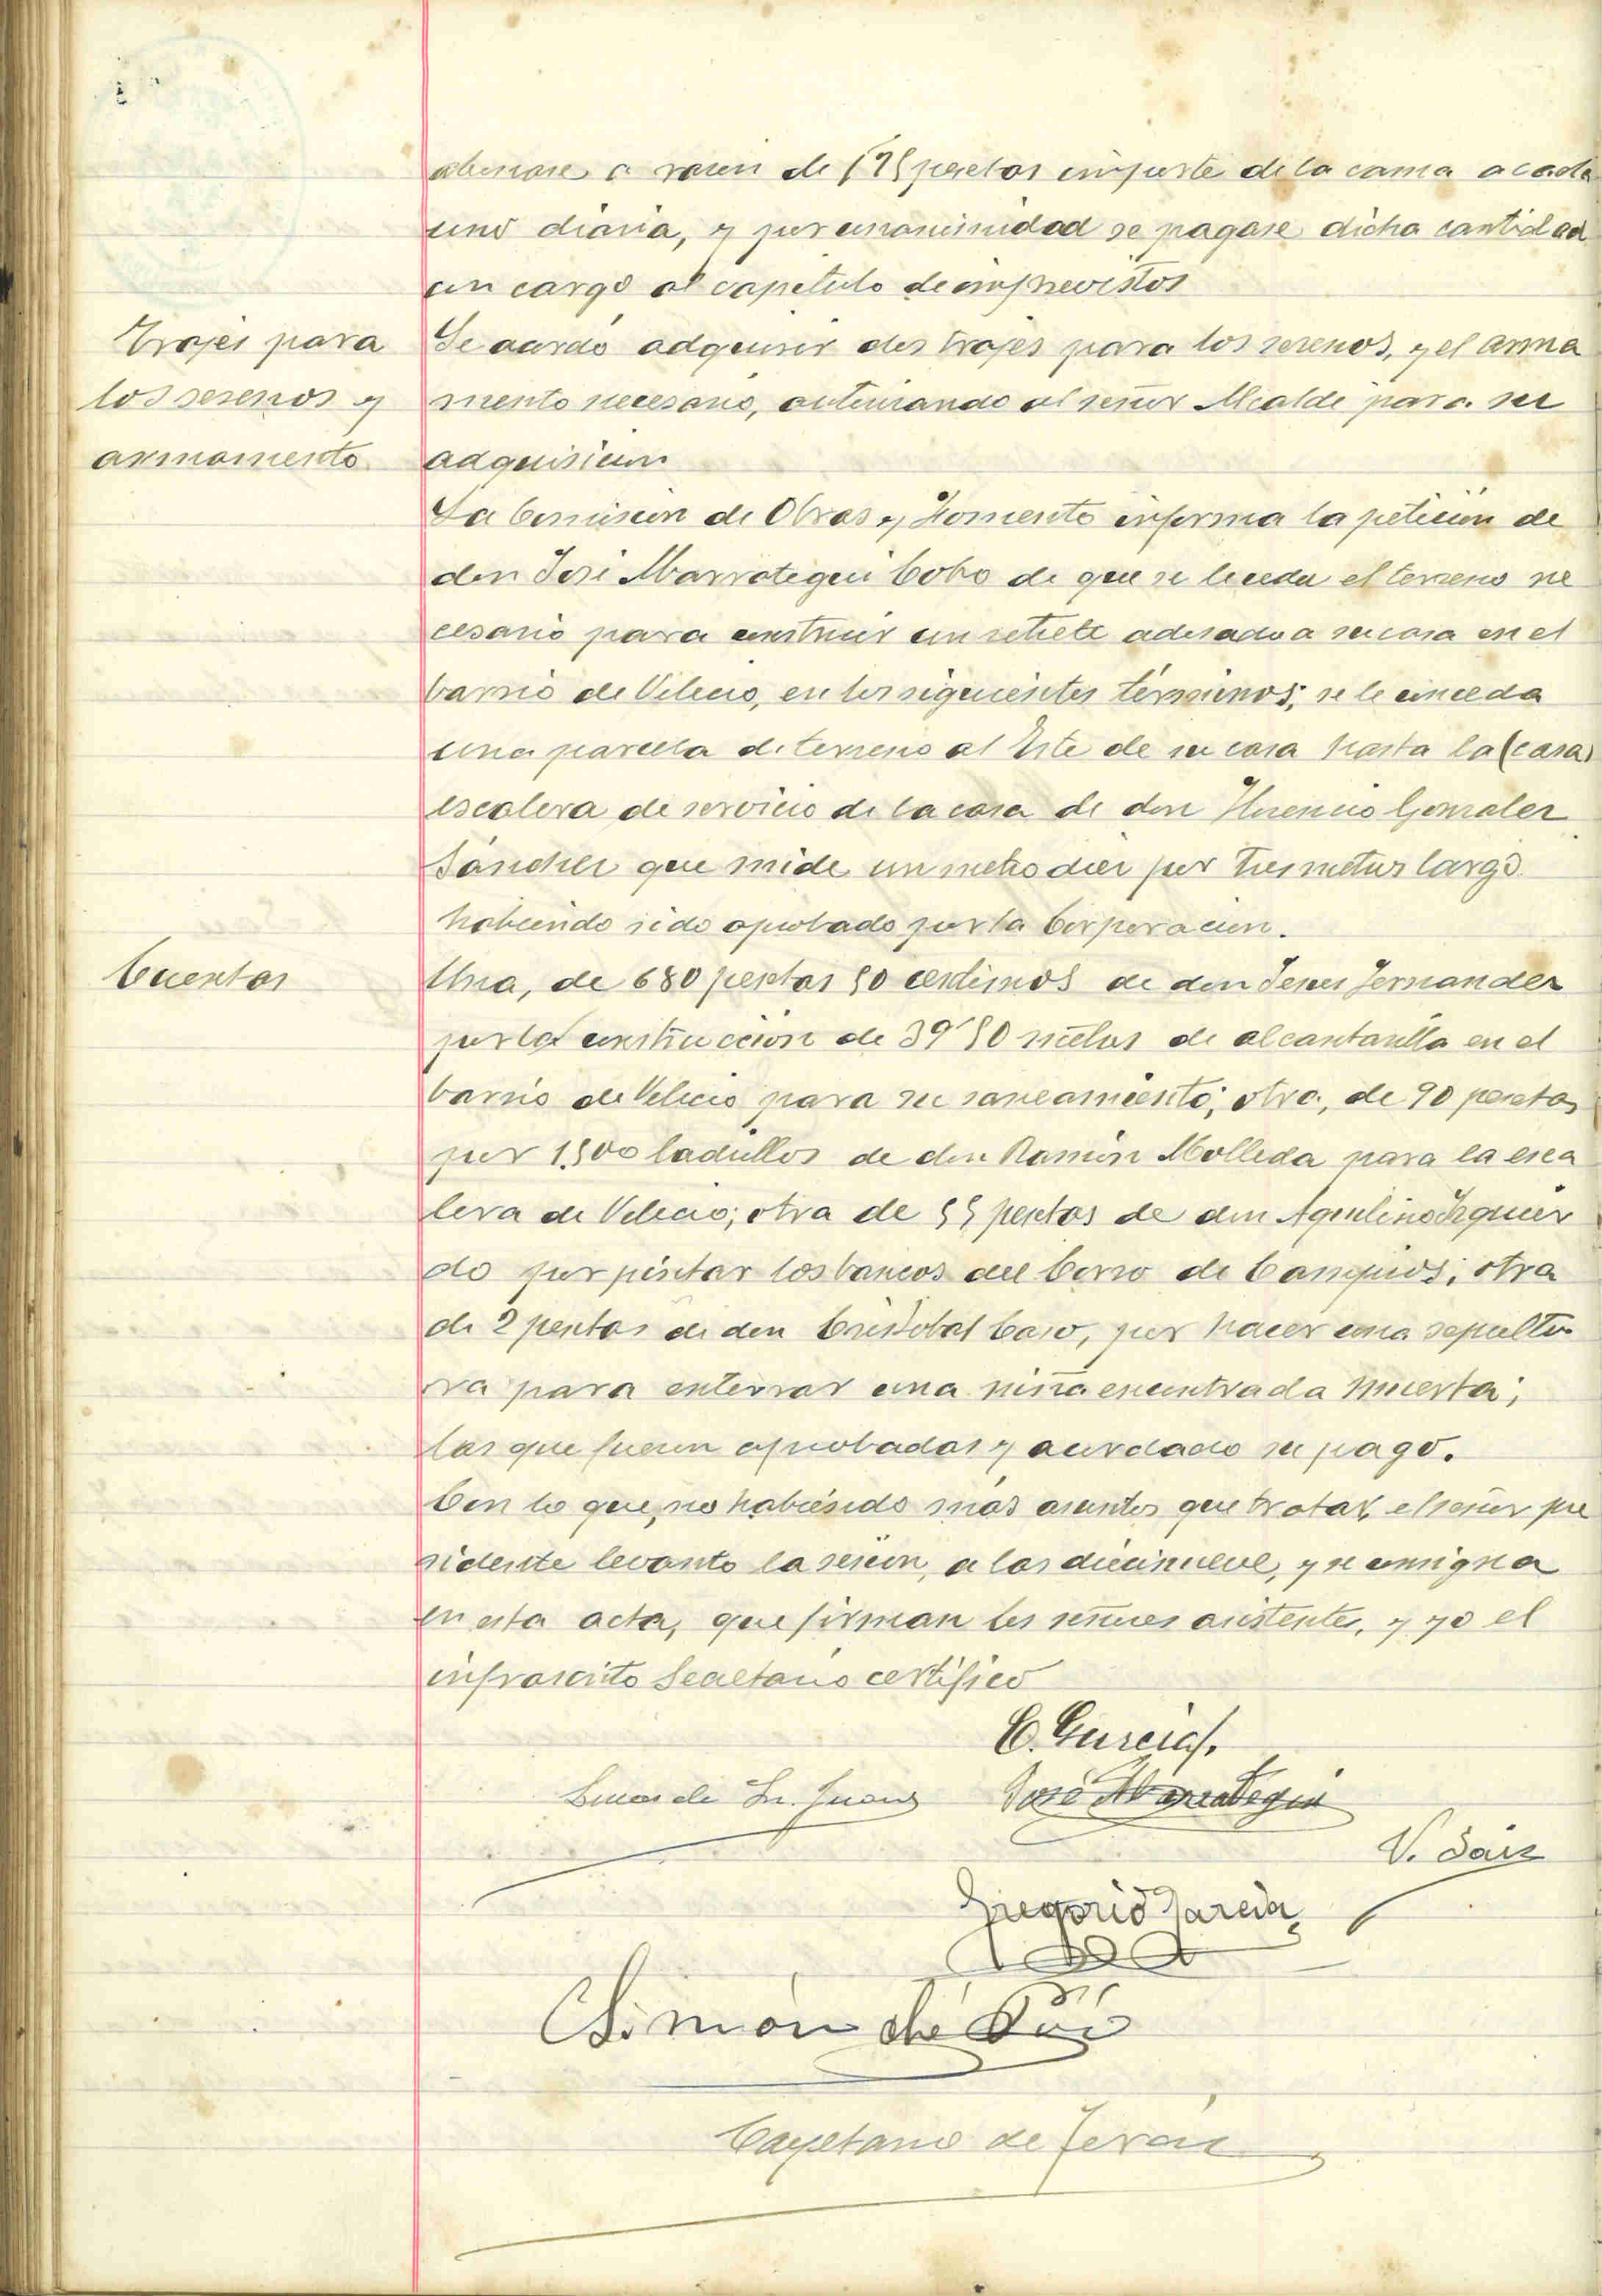 abonase a razon de 1'25 pesetas importe de la cama a cada
uno diaria, y por unanimidad se pagase dicha cantidad
con cargo al capitulo de imprevistos
Trajes para
los serenos y
armamento
Se acordó adquirir dos trajes para los serenos, y el arma
mento necesario, autorizando al señor Alcalde para su
adquisicion
La Comision de Obras y Fomento informa la petición de
don José Marrotegui Cobo de que se le ceda el terreno ne
cesario para construir un retrete adosado a su casa en el
barrio de Velecio, en los siguientes términos; se le conceda
una parcela de terreno al Este de su casa hasta la (casa)
escalera de servicio de la casa de don Gonzalez
Sánchez que mide un metro diez por tres metros largo
habiendo sido aprobado por la Corporacion.
Cuentas
Una, de 680 pesetas 50 centimos de don Jesus Fernandez
por la construcción de 39'50 metros de alcantarilla en el
barrio de Velecio para su saneamiento; otra, de 90 pesetas
por 1,500 ladrillos de don Ramón Molleda para la esca
lera de Velecio; otra de 55 pesetas de don Aquilino Izquier
do por pintar los bancos del Corro de Campios; otra
de 2 pesetas de don Cristobal Caso, por hacer una sepultu
ra para enterrar una niña encontrada muerta;
las que fueron aprobadas y acordado su pago.
Con lo que, no habiendo más asuntos que tratar, el señor pre
sidente levanto la sesion, a las diecinueve, y se consigna
en esta acta, que firman los señores asistentes, y yo el
infrascrito Secretario certifico
C. Garcia
Lucas de Sn. Juan José Marrotegui
V. Saiz
Gregorio Garcia
Simón de Pió
Cayetano de Terán